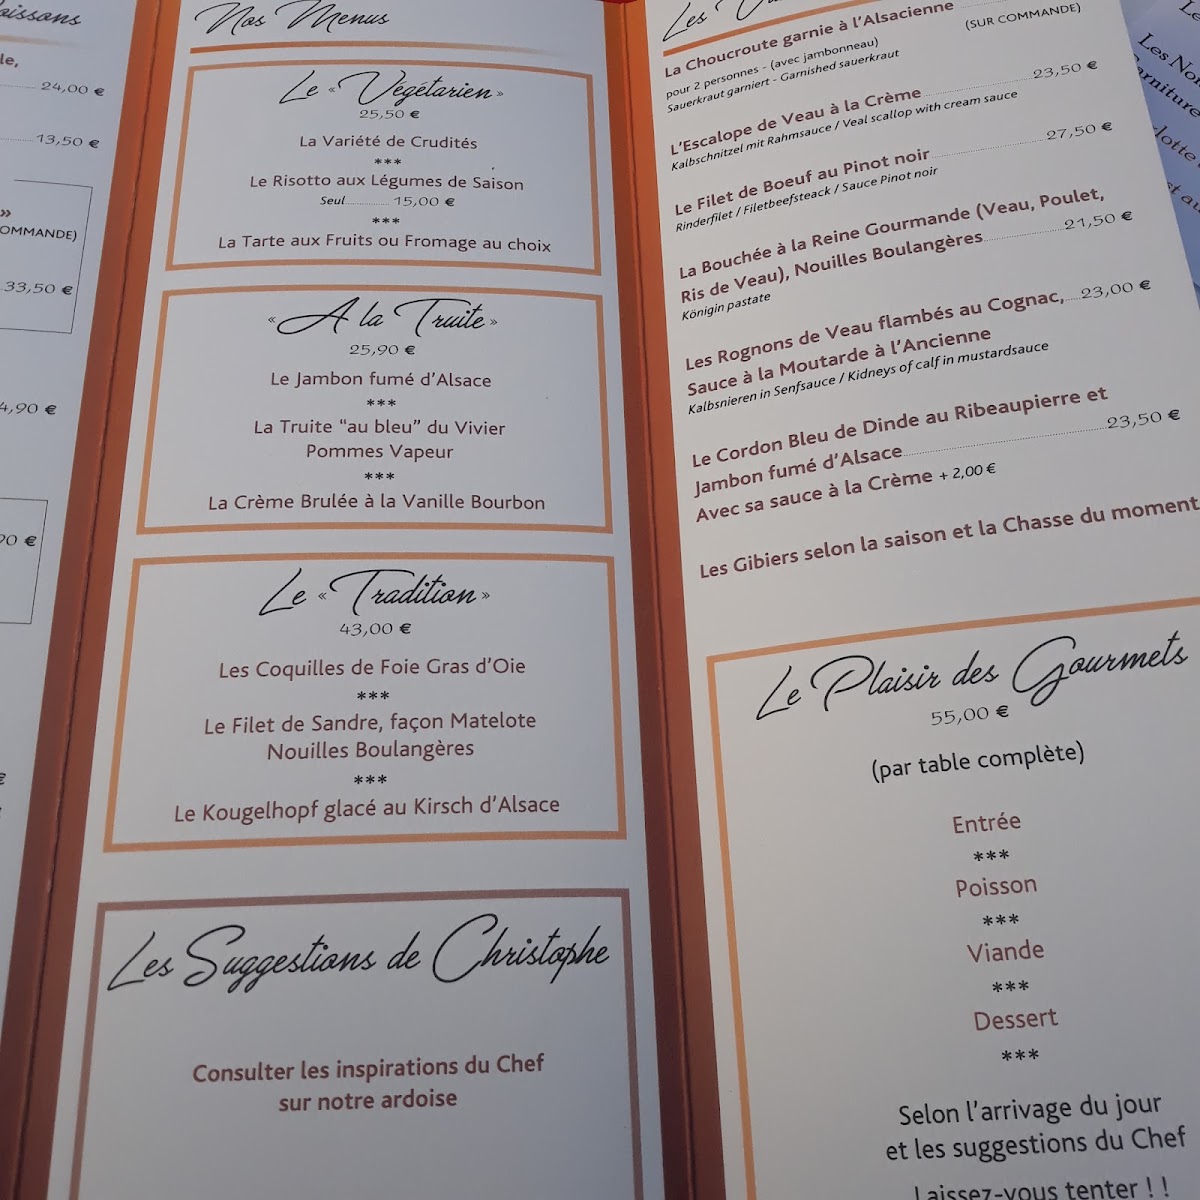 24,00 €
13,50 €
»
33,50 €
4,90 €
90 €
€
Nos Menus
Le « Végétarien »
25,50 €
La Variété de Crudités
***
Le Risotto aux Légumes de Saison
Seul 15,00 €
***
La Tarte aux Fruits ou Fromage au choix
« A la Truite »
25,90 €
Le Jambon fumé d'Alsace
***
La Truite "au bleu" du Vivier
Pommes Vapeur
***
La Crème Brulée à la Vanille Bourbon
Le « Tradition »
43,00 €
Les Coquilles de Foie Gras d'Oie
***
Le Filet de Sandre, façon Matelote
Nouilles Boulangères
***
Le Kougelhopf glacé au Kirsch d'Alsace
Les Suggestions de Christophe
Consulter les inspirations du Chef
sur notre ardoise
Les
La Choucroute garnie à l'Alsacienne
(SUR COMMANDE)
pour 2 personnes - (avec jambonneau)
Sauerkraut garniert - Garnished sauerkraut
L'Escalope de Veau à la Crème 23,50 €
Kalbschnitzel mit Rahmsauce / Veal scallop with cream sauce
Le Filet de Boeuf au Pinot noir 27,50 €
Rinderfilet / Filetbeefsteack / Sauce Pinot noir
La Bouchée à la Reine Gourmande (Veau, Poulet,
Ris de Veau), Nouilles Boulangères 21,50 €
Königin pastate
Les Rognons de Veau flambés au Cognac, 23,00 €
Sauce à la Moutarde à l'Ancienne
Kalbsnieren in Senfsauce / Kidneys of calf in mustardsauce
Le Cordon Bleu de Dinde au Ribeaupierre et
Jambon fumé d'Alsace 23,50 €
Avec sa sauce à la Crème + 2,00 €
Les Gibiers selon la saison et la Chasse du moment
Le Plaisir des Gourmets
55,00 €
(par table complète)
Entrée
***
Poisson
***
Viande
***
Dessert
***
Selon l'arrivage du jour
et les suggestions du Chef
Laissez-vous tenter ! !
Les